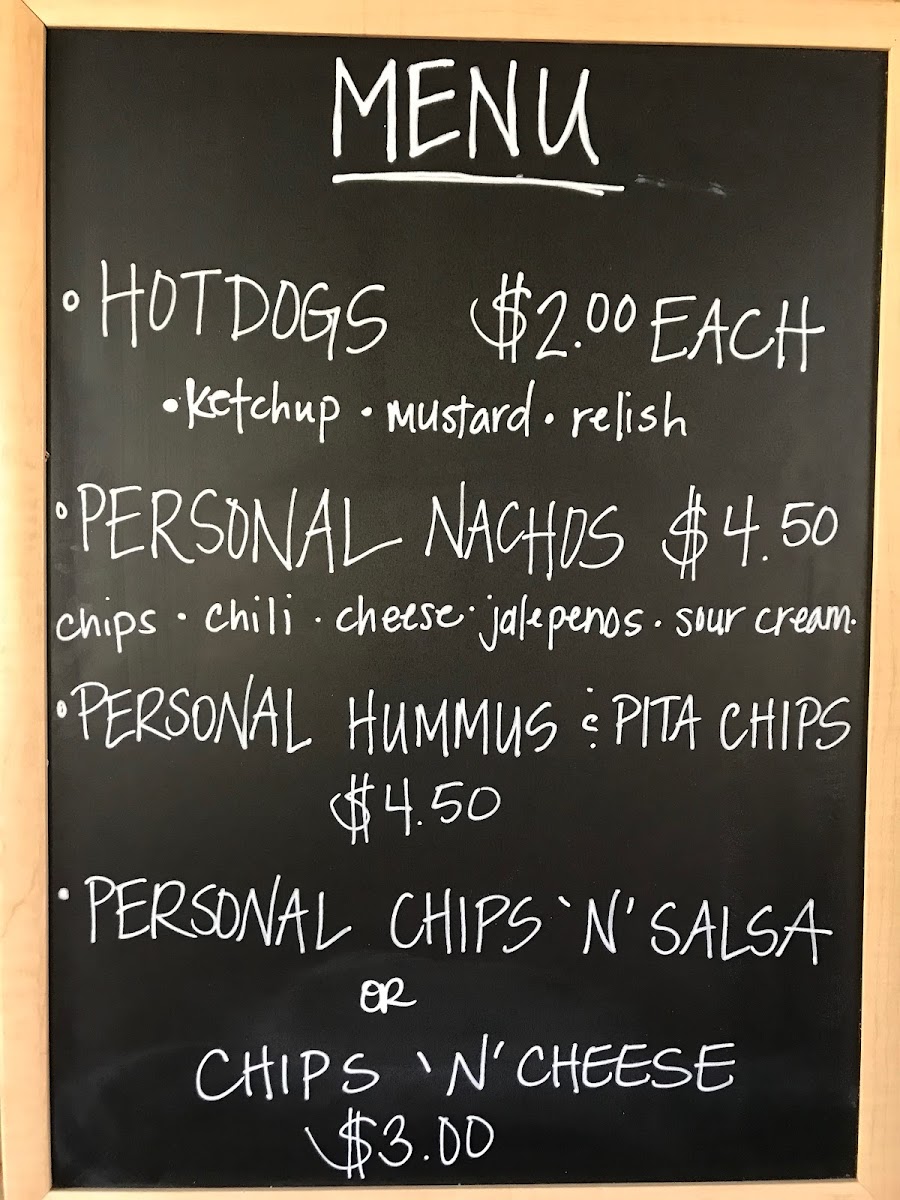 MENU
• HOTDOGS $2.00 EACH
• ketchup • mustard • relish
• PERSONAL NACHOS $4.50
chips • chili • cheese • jalepenos • sour cream •
• PERSONAL HUMMUS & PITA CHIPS
$4.50
• PERSONAL CHIPS 'N' SALSA
OR
CHIPS 'N' CHEESE
$3.00